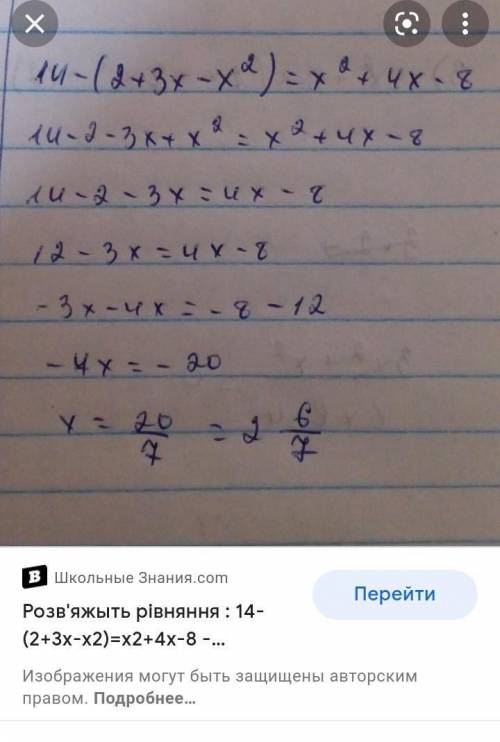 14-(2+3x-x²)=x²+4x-8
14-2-3x+x²=x²+4x-8
14-2-3x=4x-8
12-3x=4x-8
-3x-4x=-8-12
-4x=-20
x=20/7=2 6/7
B Школьные Знания.com
Перейти
Розв'яжыть рівняння : 14-
(2+3х-х2)=х2+4х-8 -...
Изображения могут быть защищены авторским
правом. Подробнее...